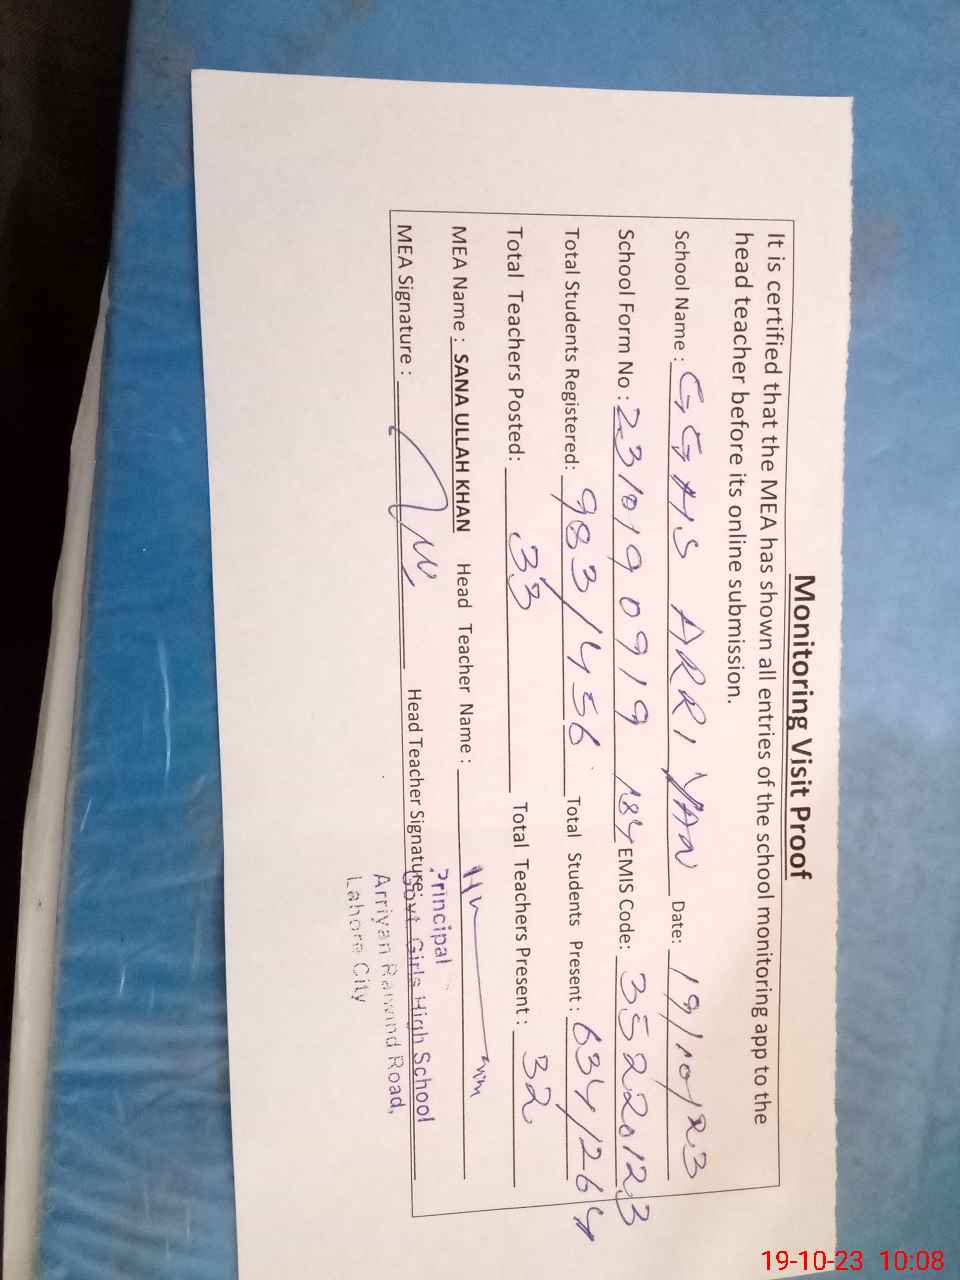 Monitoring Visit Proof
It is certified that the MEA has shown all entries of the school monitoring app to the
head teacher before its online submission.
School Name : GGHS ARRIYAN Date: 19/10/23
School Form No : 231019 0919 184 EMIS Code: 35220123
Total Students Registered: 983/1456 Total Students Present : 634/1264
Total Teachers Posted: 33 Total Teachers Present : 32
MEA Name : SANA ULLAH KHAN Head Teacher Name :
MEA Signature : Head Teacher Signature:
Principal
Govt. Girls High School
Arriyan Raiwind Road,
Lahore City
19-10-23 10:08